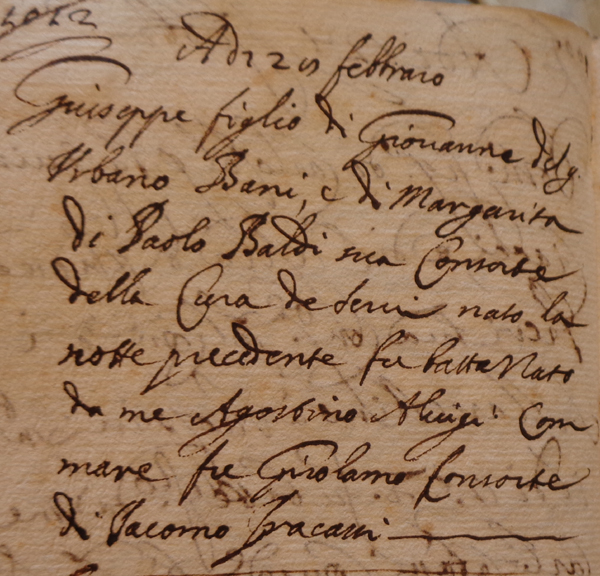 Adi 25 febbraro
Giuseppe figlio di Giovanne del q
Urbano Bani, e di Margarita
di Paolo Baldi sua Consorte
della Cura de Servi nato la
notte precedente fu battezzato
da me Agostino Aluigi Com
mare fu Girolamo Consorte
di Iacomo Fracassi